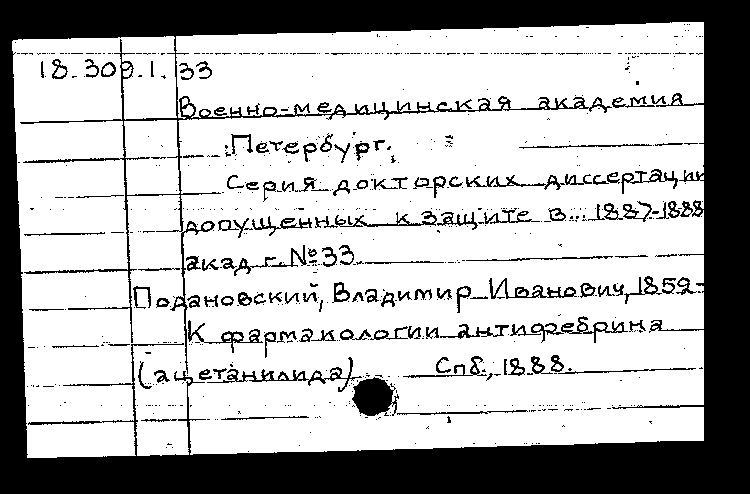 18.309.1.33
Военно-медицинская академия
Петербург.
Серия докторских диссертаций
допущенных к защите в... 1887-1888
акад г. №33
Подановский, Владимир Иванович, 1859-
К фармакологии антифебрина
(ацетанилида) Спб., 1888.